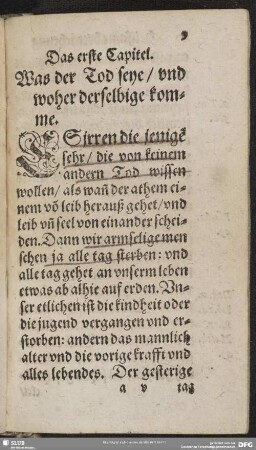 9
Das erste Capitel.
Was der Tod seye / vnd
woher derselbige kom-
me.
ES irren die jenige
sehr / die von keinem
andern Tod wissen
wollen / als wañ der athem ei-
nem võ leib herauß gehet / vnd
leib vñ seel von einander schei-
den. Dann wir armselige men
schen ja alle tag sterben: vnd
alle tag gehet an vnserm leben
etwas ab alhie auf erden. Vn-
ser etlichen ist die kindheit oder
die jugend vergangen vnd er-
storben: andern das mannlich
alter vnd die vorige krafft vnd
alles lebendes. Der gesterige
a v tag
SLUB
DFG